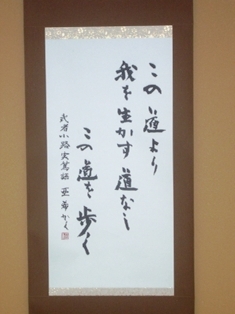 この道より
我を生かす道なし
この道を歩く
武者小路実篤語 亜希かく